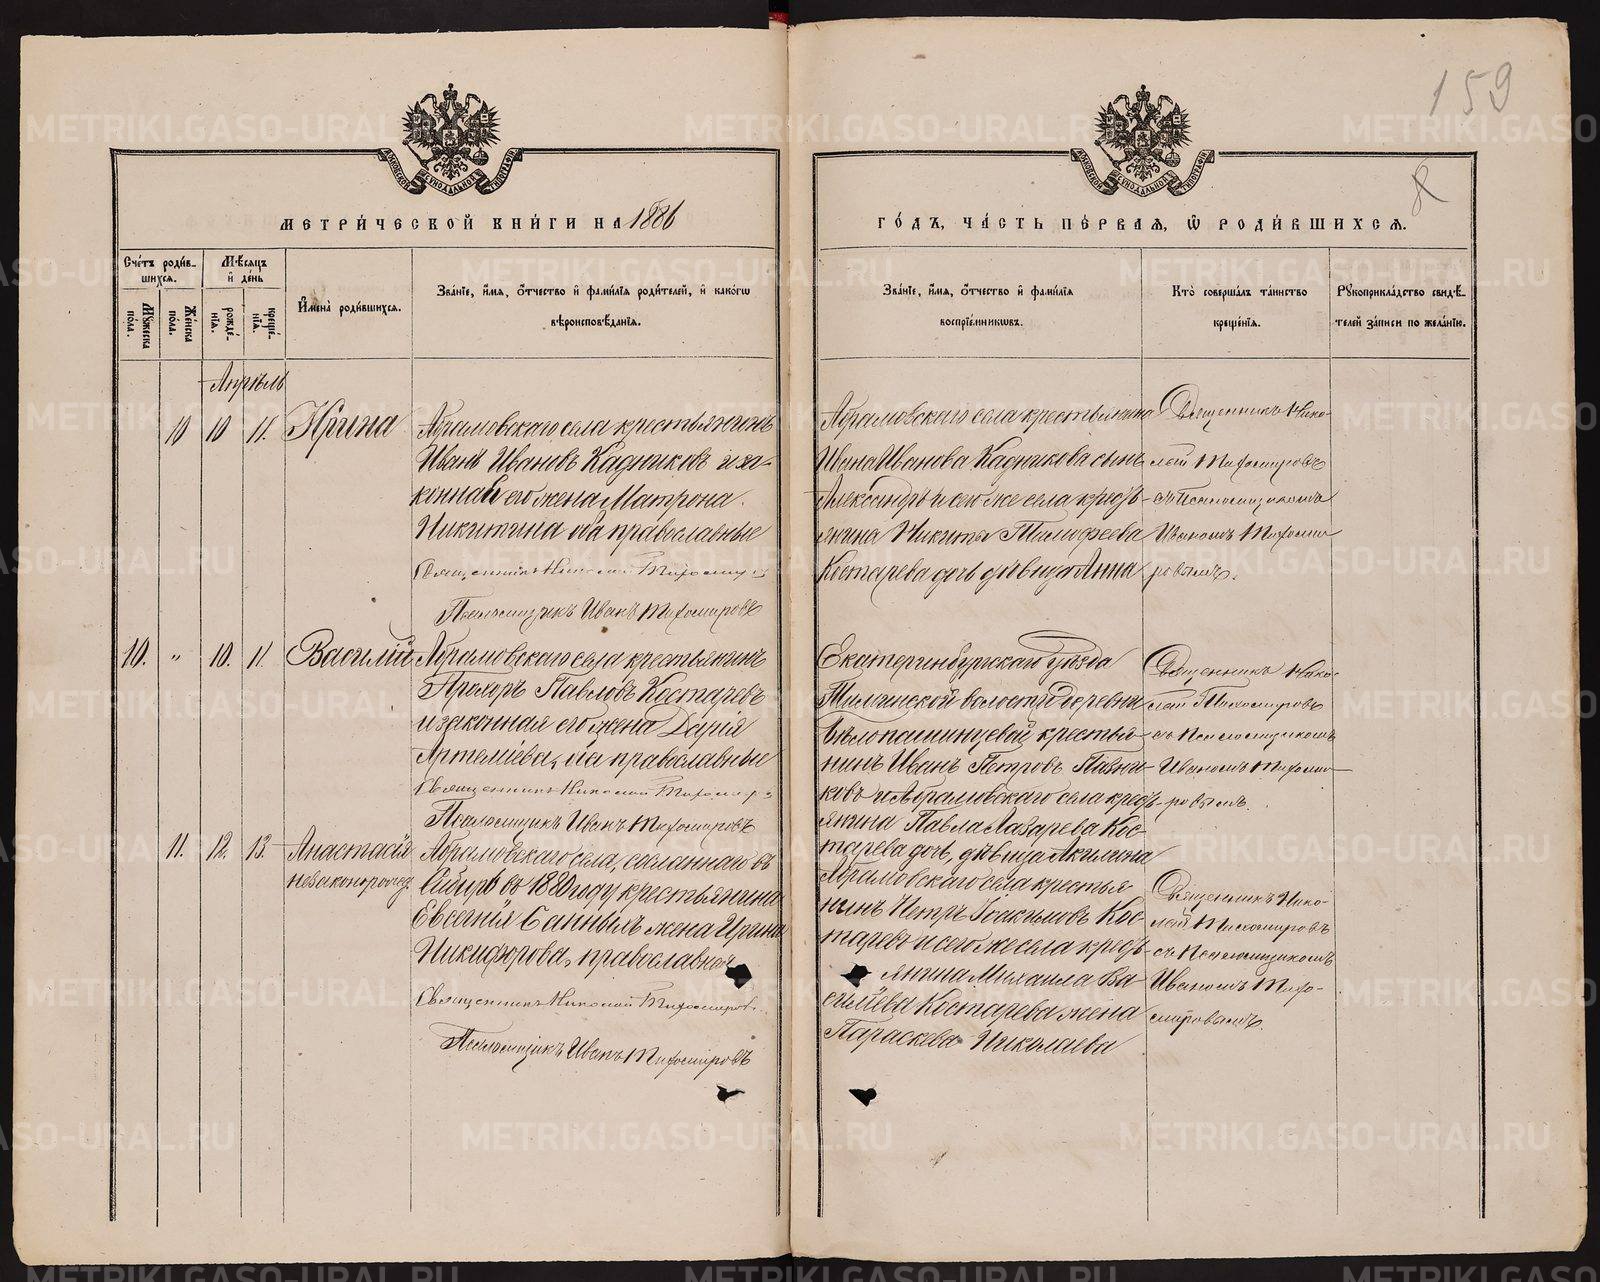 159
8
МЕТРИ́ЧЕСКОЙ КНИ́ГИ НА 1886
ГО́ДЪ, ЧА́СТЬ ПЕ́РВАЯ, Ѡ РОДИ́ВШИХСЯ.
Сче́тъ роди́в-
шихся.
Мѣ́сяцъ
и де́нь
Мꙋжеска
пола.
Же́нска
по́ла.
рожде́-
нїѧ.
креще́-
нїѧ.
И҆мена̀ роди́вшихся.
Зва́нїе, и҆́мѧ, ѻ҆́тчество и҆ фами́лїѧ роди́телей, и҆ како́гѡ
вѣроисповѣ́данїѧ.
Зва́нїе, и҆́мѧ, ѻ҆́тчество и҆ фами́лїѧ
воспрїе́мникѡвъ.
Кто̀ соверша́лъ та́инство
креще́нїѧ.
Рꙋкоприкла́дство свидѣ́-
телей за́писи по жела́нїю.
Апрѣль
10 10 11. Ирина
Абрамовскаго села крестьянинъ
Иванъ Ивановъ Кадниковъ и за-
конная его жена Матрона
Никитина оба православные
Священникъ Николай Тихомиров
Псаломщикъ Иванъ Тихомировъ
Абрамовскаго села крестьянина
Ивана Иванова Кадникова сынъ
Александръ и сего же села крест-
янина Никиты Тимофеева
Костарева дочь дѣвица Анна
Священникъ Нико-
лай Тихомировъ
съ Псаломщикомъ
Иваномъ Тихоми-
ровымъ.
10. " 10. 11. Василій
Абрамовскаго села крестьянинъ
Прохоръ Павловъ Костаревъ
и законная его жена Дарія
Артеміева, оба православные
Священникъ Николай Тихомиров
Псаломщикъ Иванъ Тихомировъ
Екатеринбургскаго уѣзда
волости деревни
крестья-
нинъ Иванъ Петровъ
ковъ и Абрамовскаго села крест-
янина Павла Лазарева Кос-
тарева дочь, дѣвица Акилина
Священникъ Нико-
лай Тихомировъ
съ Псаломщикомъ
Иваномъ Тихоми-
ровымъ.
11. 12. 13. Анастасія
незаконорожд.
Абрамовскаго села, сосланнаго въ
Сибирь въ 1880 году крестьянина
Евсенія жена Ирина
Никифорова, православная
Священникъ Николай Тихомиров.
Псаломщикъ Иванъ Тихомировъ
Абрамовскаго села крестья
нинъ Петръ Іоакимовъ Кос-
таревъ и сего же села крест-
янина Михаила Ва-
сильева Костарева жена
Параскева Николаева
Священникъ Нико-
лай Тихомировъ
съ Псаломщикомъ
Иваномъ Тихо-
мировымъ.
METRIKI.GASO-URAL.RU